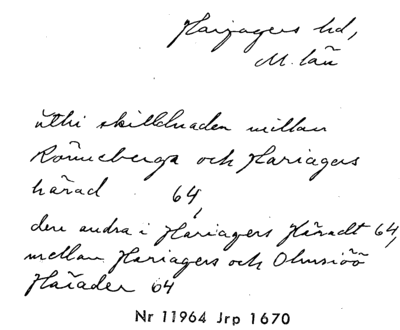 Harjagers hd,
M. län
uthi skilldnaden mellan
Rönneberga och Hariagers
härad 64,
den andra i Hariagers Häradt 64,
mellan Hariagers och Onnsiöö
Härader 64
Nr 11964 Jrp 1670